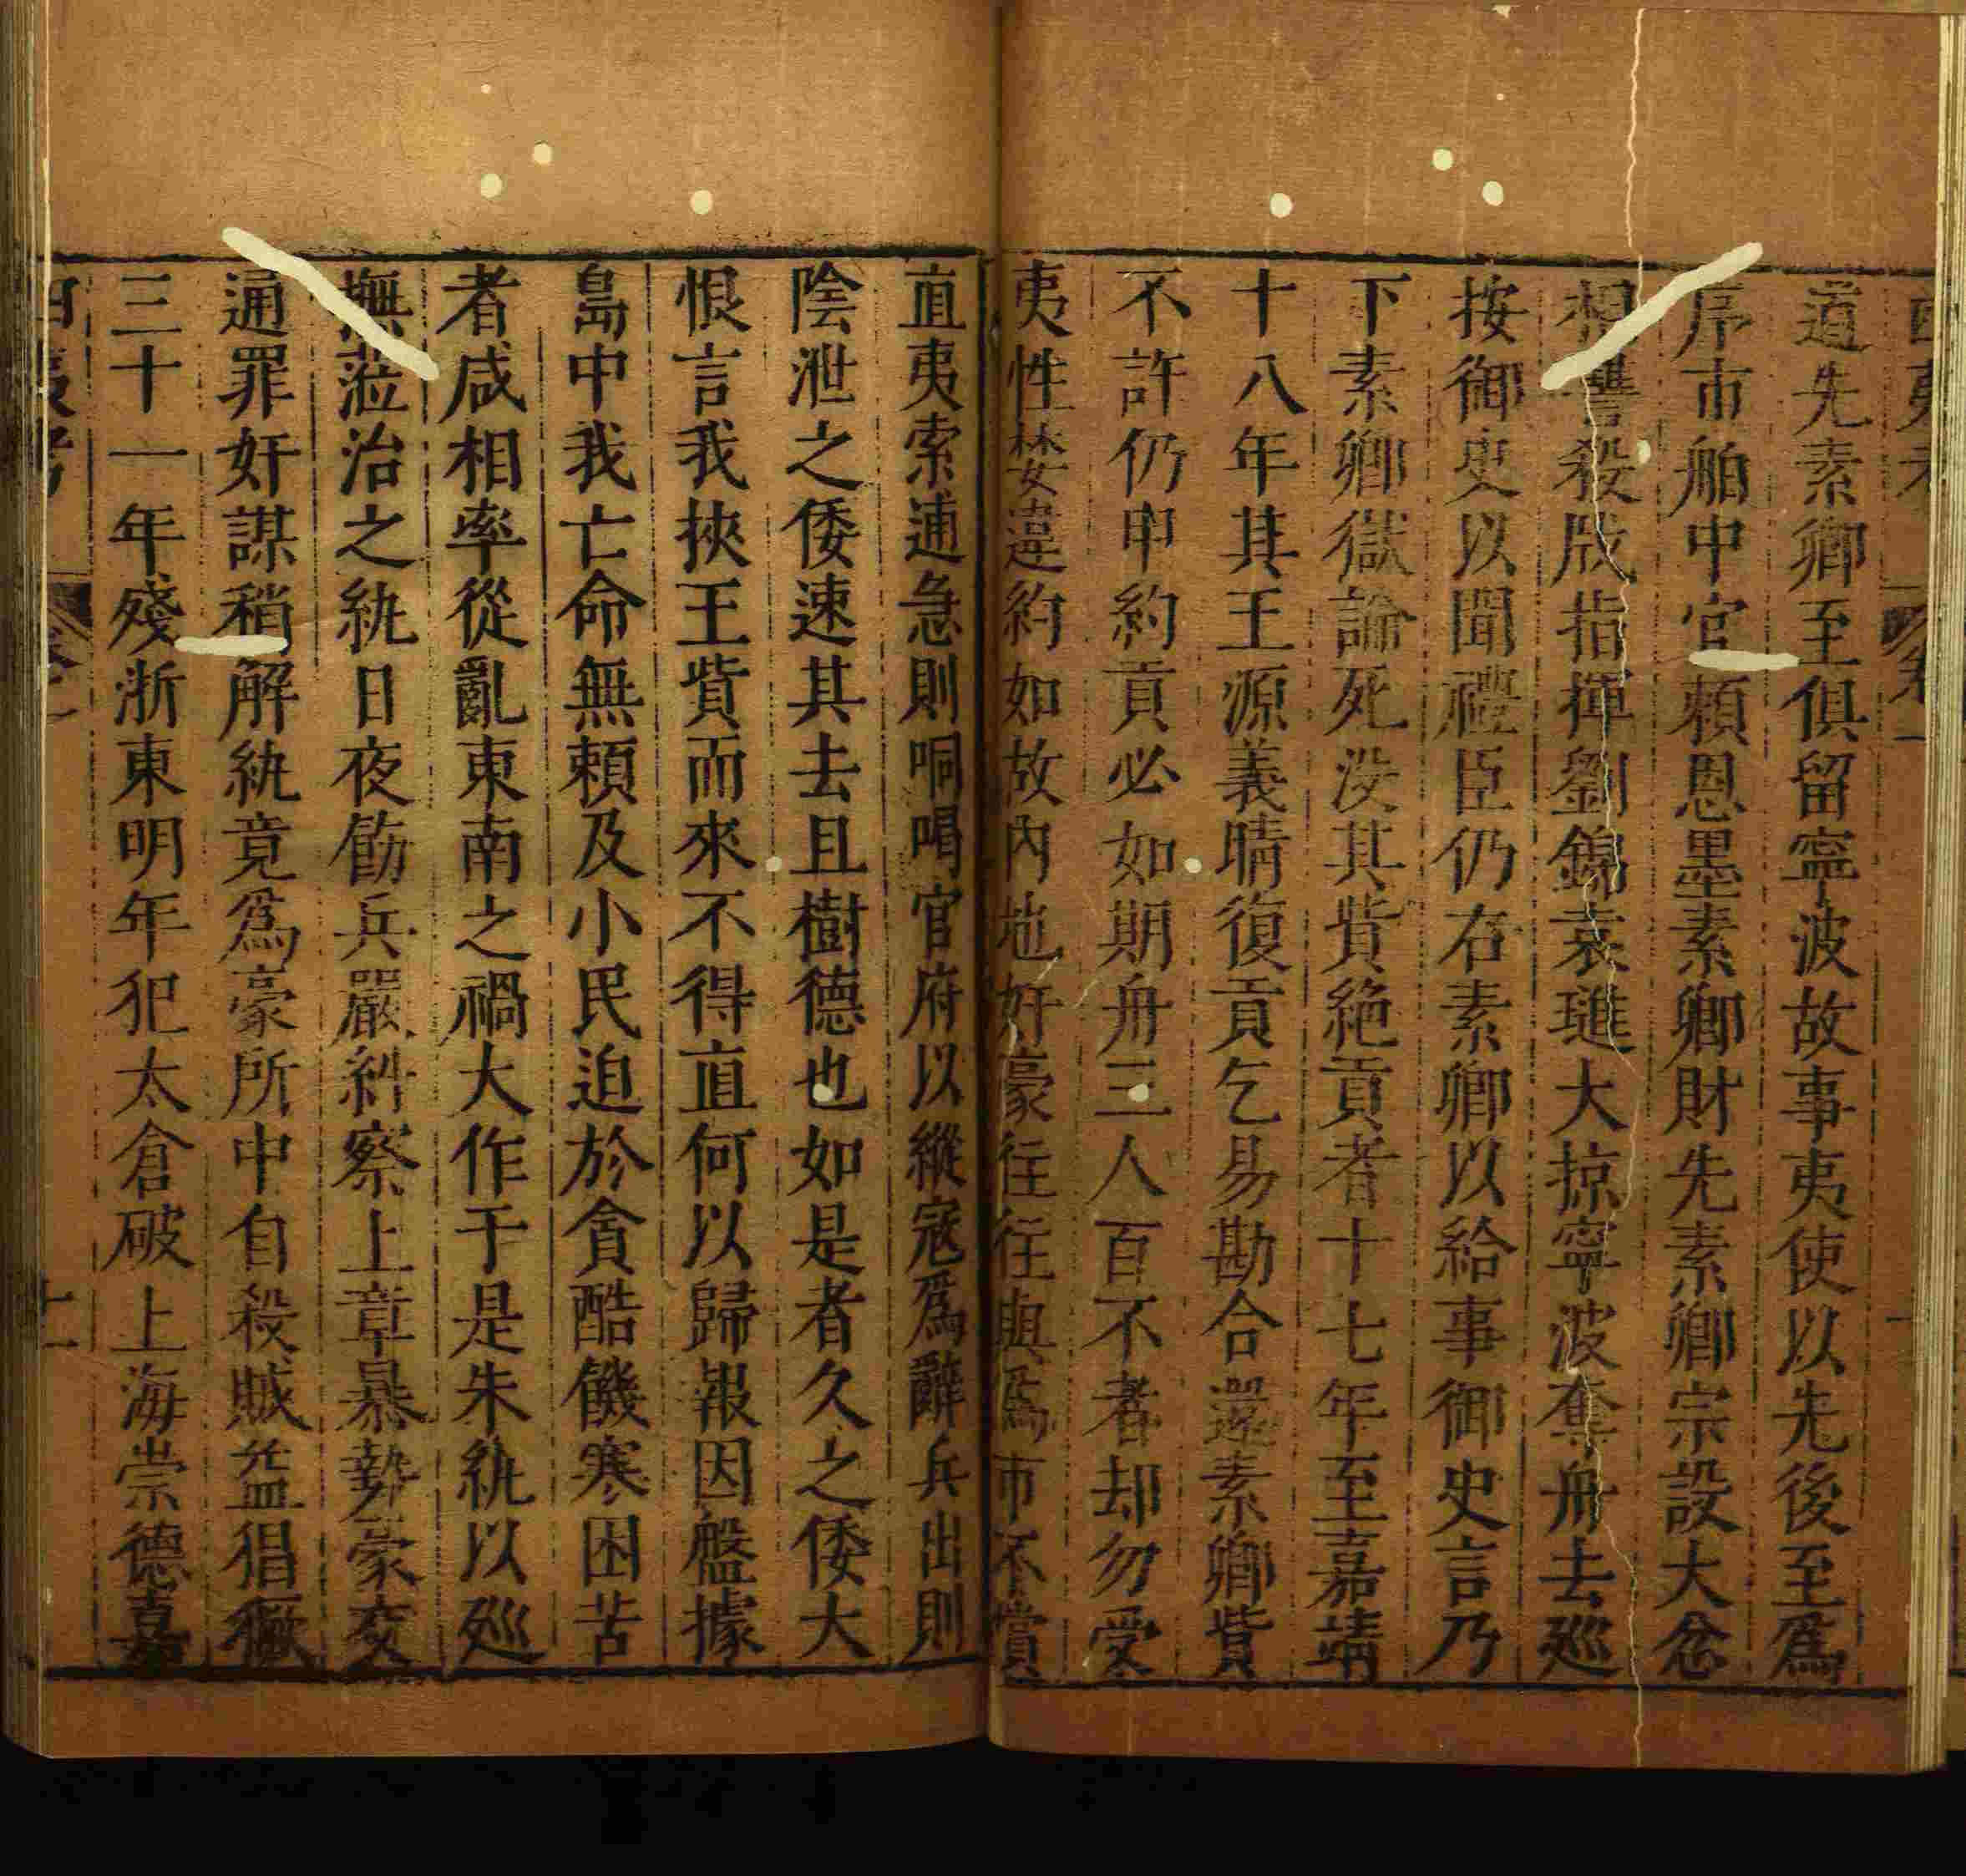 道先素卿至俱留寧波故事夷使以先後至爲
序市舶中官賴恩墨素卿財先素卿宗設大忿
相讐殺戕指揮劉錦袁璡大掠寧波奪舟去廵
按御史以聞禮臣仍右素卿以給事御史言乃
下素卿獄論死没其貲絶貢者十七年至嘉靖
十八年其王源義晴復貢乞易勘合還素卿貲
不許仍申約貢必如期舟三人百不者却勿受
夷性婪違約如故內地奸豪往往與爲市不償
直夷索逋急則哃喝官府以縱寇爲辭兵出則
陰泄之倭速其去且樹德也如是者久之倭大
恨言我挾王貲而來不得直何以歸報因盤據
島中我亡命無賴及小民迫於貪酷饑寒困苦
者咸相率從亂東南之禍大作于是朱紈以廵
撫蒞治之紈日夜飭兵嚴糾察上章暴勢豪交
通罪奸謀稍解紈竟爲豪所中自殺賊益猖獗
三十一年殘浙東明年犯太倉破上海崇德嘉
四夷考